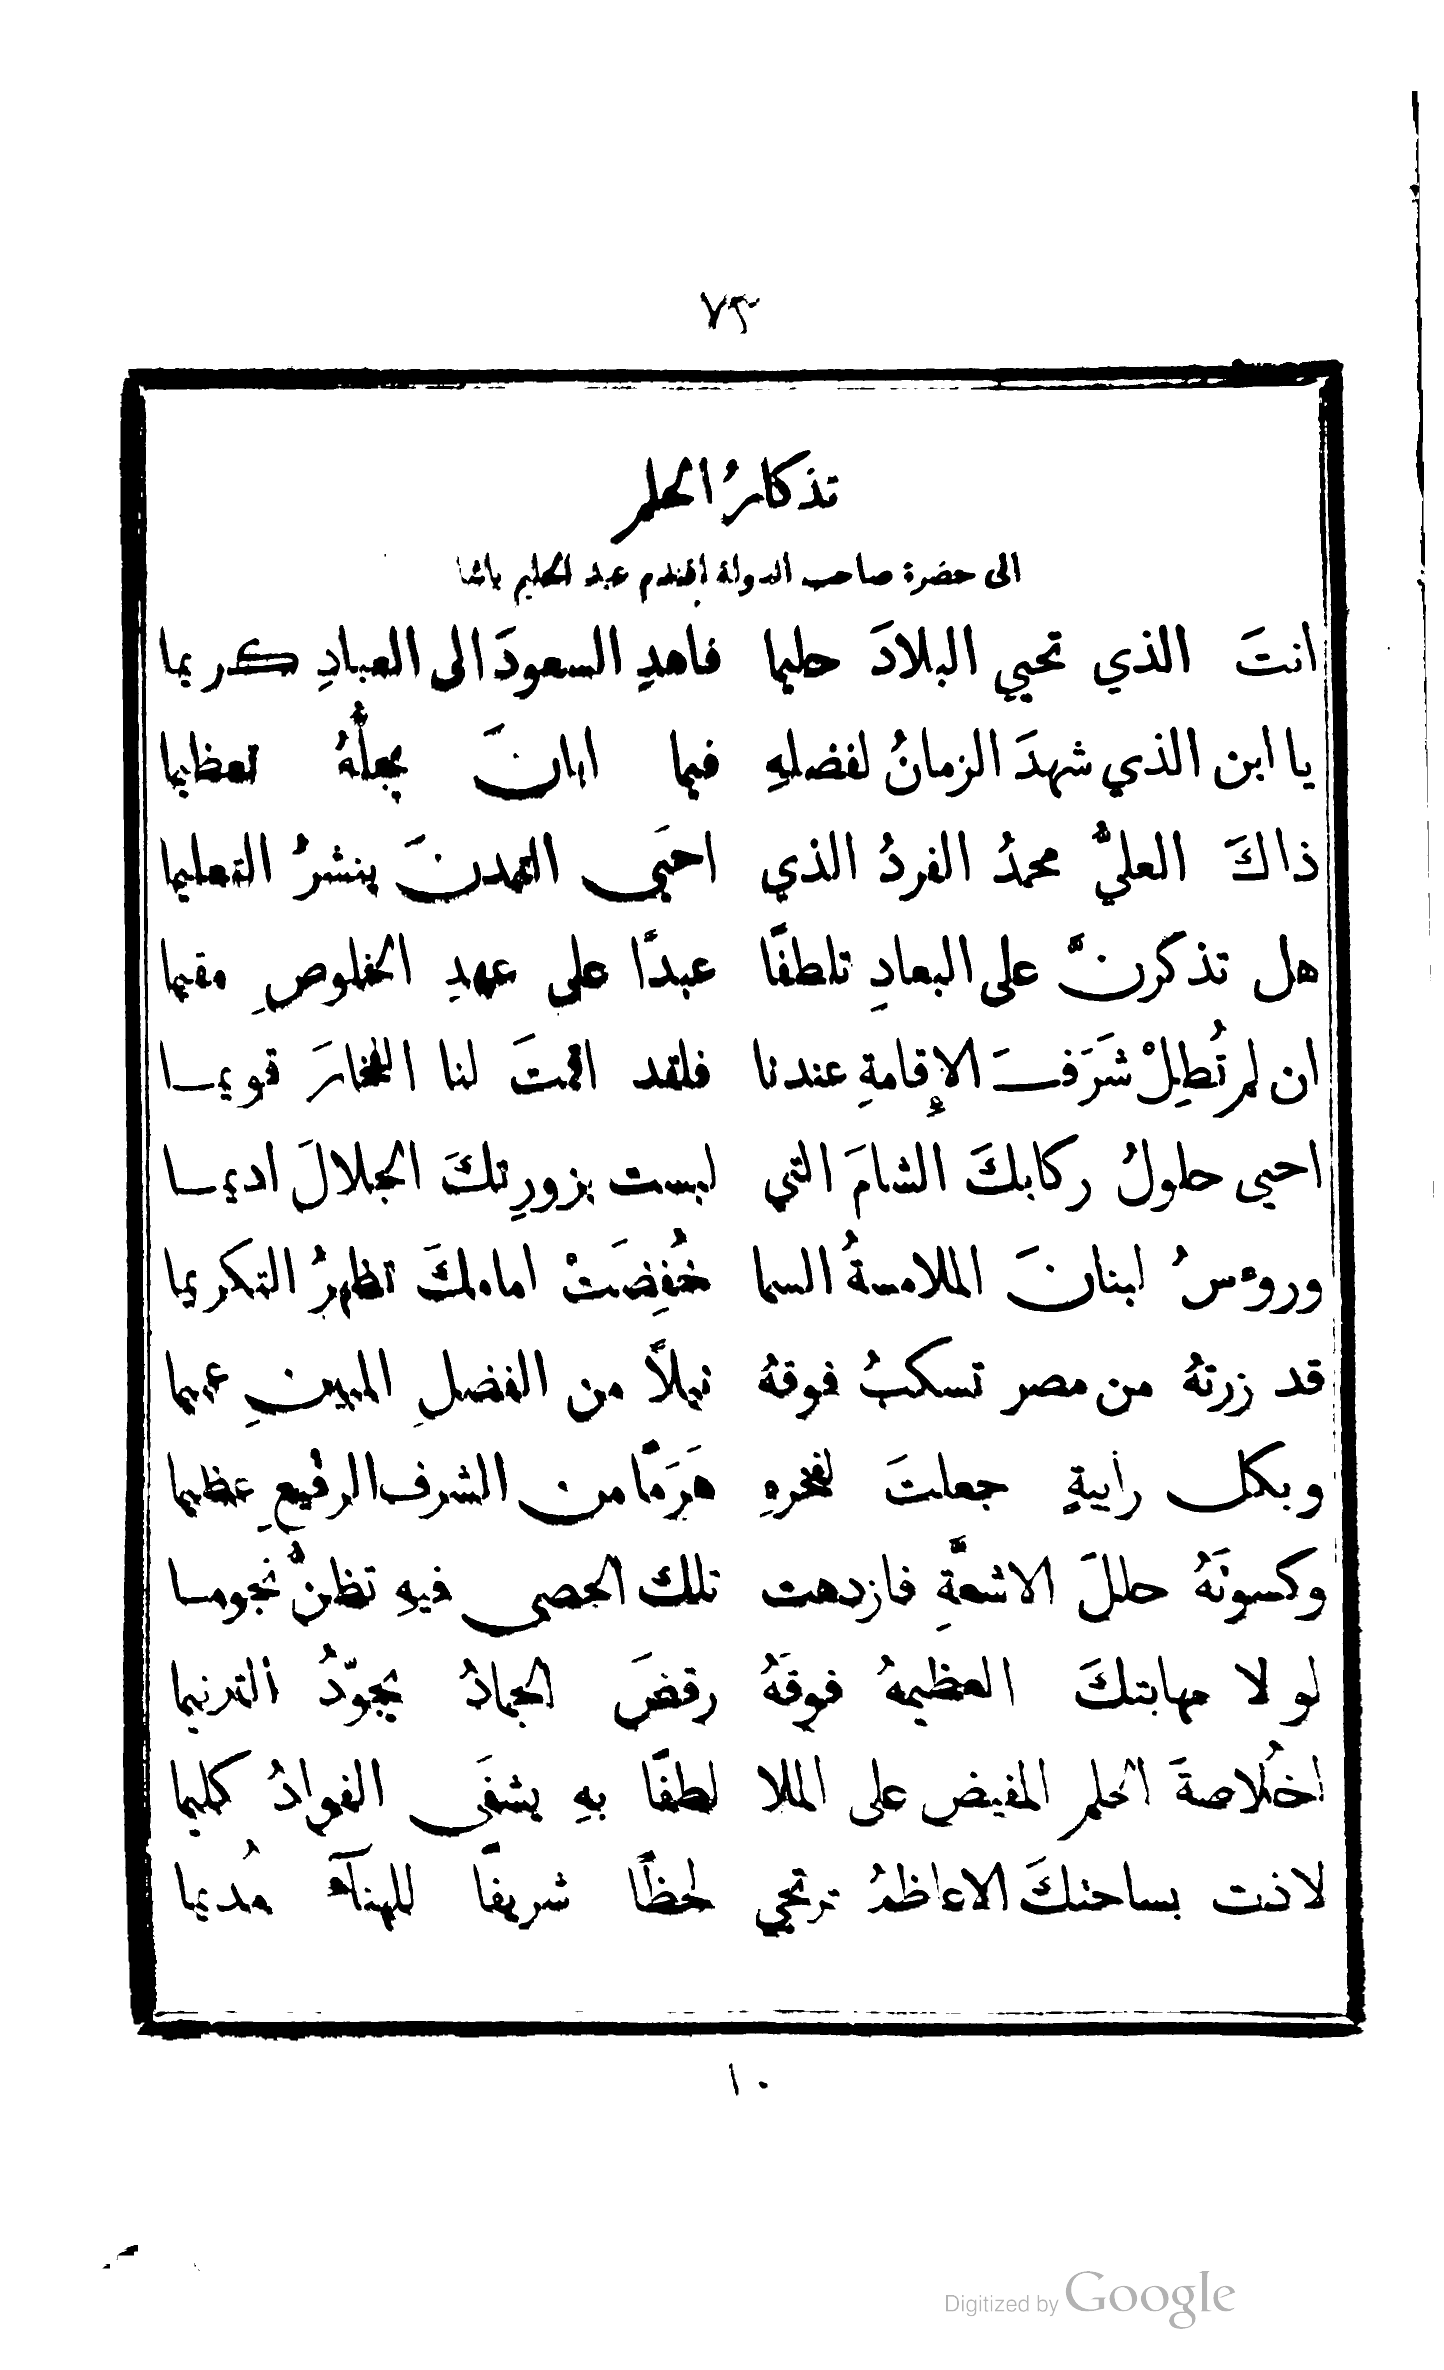 ٧٣
تذكارُ الحلم
الى حضرة صاحب الدولة افندم عبد الحليم باشا
انتَ الذي تحيي البلادَ حليما فاهدِ السعودَ الى العبادِ كريما
يا ابن الذي شهدَ الزمانُ لفضلهِ فيما ابانَ بجعلُّهُ تعظيما
ذاكَ العليُّ محمدُ الفردُ الذي احيَى التمدنَ ينشرُ التعليما
هل تذكرنَّ على البعادِ تلطفًا عبدًا على عهدِ الخلوصِ مقيما
ان لم تُطِلْ شَرَفَ الإِقامةِ عندنا فلقد اقمتَ لنا الفخارَ قويمـا
احيى حلولُ ركابكَ الشامَ التي لبست بزورتكَ الجلالَ اديمـا
وروءسُ لبنانَ الملامسةُ السما خُفِضَتْ امامكَ تظهرُ التكريما
قد زرتهُ من مصر تسكبُ فوقهُ نيلاً من الفضلِ المبينِ عميما
وبكل رابيةٍ جعلتَ لفخرهِ هَرَمًا من الشرف الرفيعِ عظيما
وكسوتَهُ حللَ الاشعَّةِ فازدهت تلك الحصى فيهِ تظنُّ نجومـا
لو لا مهابتكَ العظيمةُ فوقَهُ رقصَ الجمادُ يجوّدُ الترنيما
اخُلاصةَ الحلم المفيض على الملا لطفًا بهِ يشفَى الفوادُ كليما
لاذت بساحتكَ الاعاظمُ ترتجي لحظًا شريفًا للهنآء مُديما
١٠
Digitized by Google